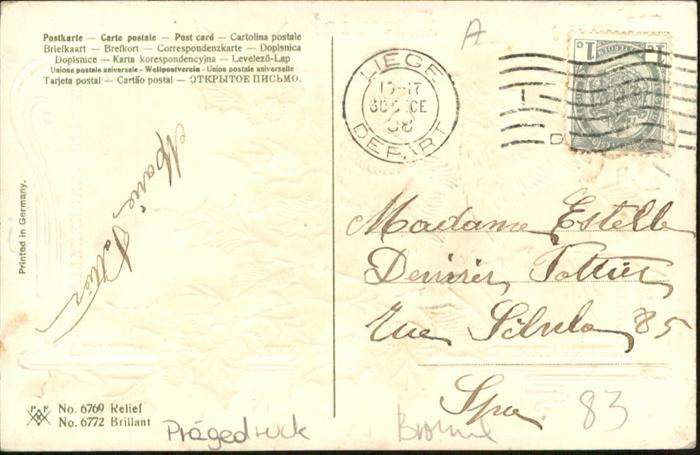 Postkarte – Carte postale – Post card – Cartolina postale
Briefkaart – Brefkort – Correspondenzkarte – Dopisnica
Dopisnice – Karta korespondencyjna – Levelező-Lap
Union postale universelle – Weltpostverein – Union postale universelle
Tarjeta postal – Cartão postal – ОТКРЫТОЕ ПИСЬМО.
A
LIEGE
08
DEPART
1c 1c
Marie
Printed in Germany.
Madame Estelle
Pottier
Rue 85
Spa
83
No. 6769 Relief
No. 6772 Brillant
Prägedruck